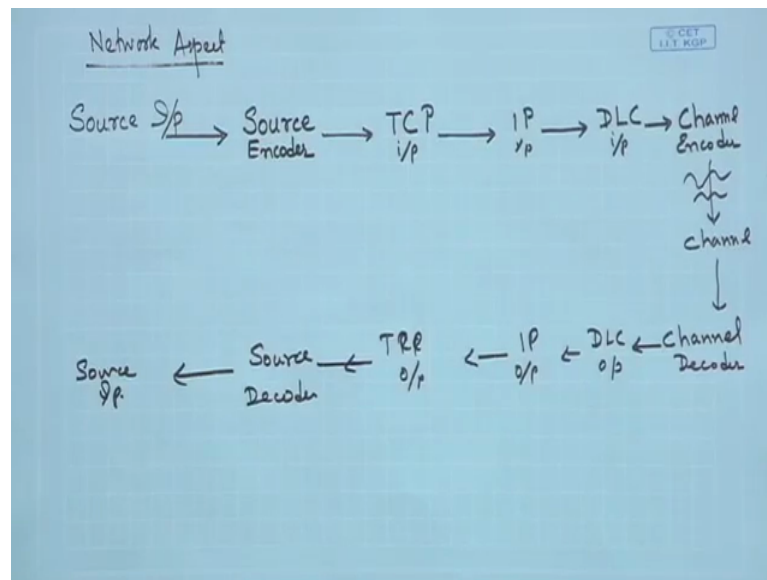 Network Aspect
© CET
I.I.T. KGP
Source I/p → Source Encoder → TCP i/p → IP i/p → DLC i/p → Channel Encoder
Channel
Source I/p. ← Source Decoder ← TRP o/p ← IP o/p ← DLC o/p ← Channel Decoder